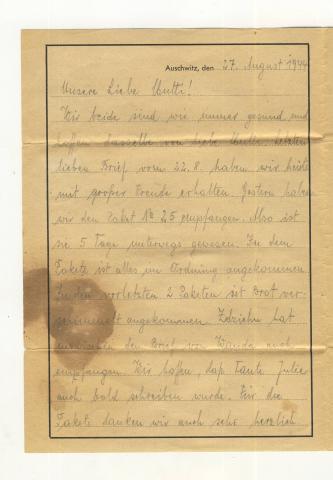 Auschwitz, den 27. August 1944
Unsere liebe Mutti!
Wir beide sind wie immer gesund und
hoffen dasselbe von liebe Mutti. Letzten
lieben Brief vom 22.8. haben wir heute
mit großer Freude erhalten. Gestern haben
wir den Paket № 25 empfangen. Also ist
sie 5 Tage unterwegs gewesen. In dem
Pakete ist alles in Ordnung angekommen.
In den vorletzten 2 Paketen ist Brot ver-
schimmelt angekommen. hat
inzwischen den Brief von Wanda auch
empfangen. Wir hoffen, daß Tante Julie
auch bald schreiben wurde. Für die
Pakete danken wir auch sehr herzlich.